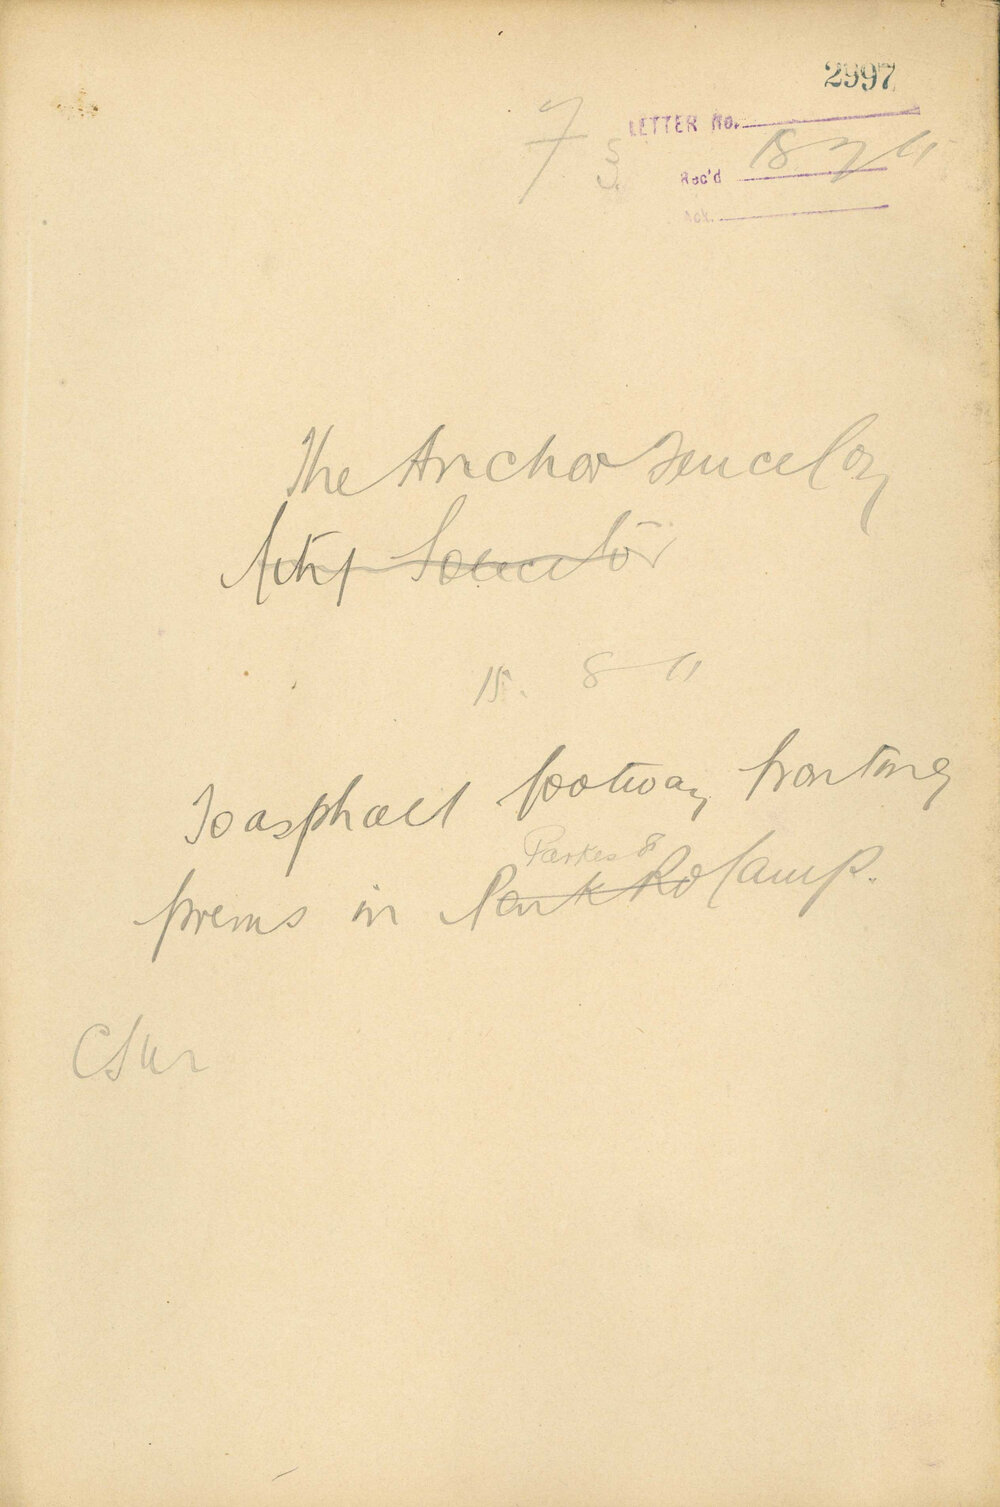 2997
LETTER No.
7
Rec'd 18
Ack.
The Anchor Fence Coy
Actg Solicitor
15. 8 11
To asphalt footway fronting
Parkes St
prems in Park Rd Camp.